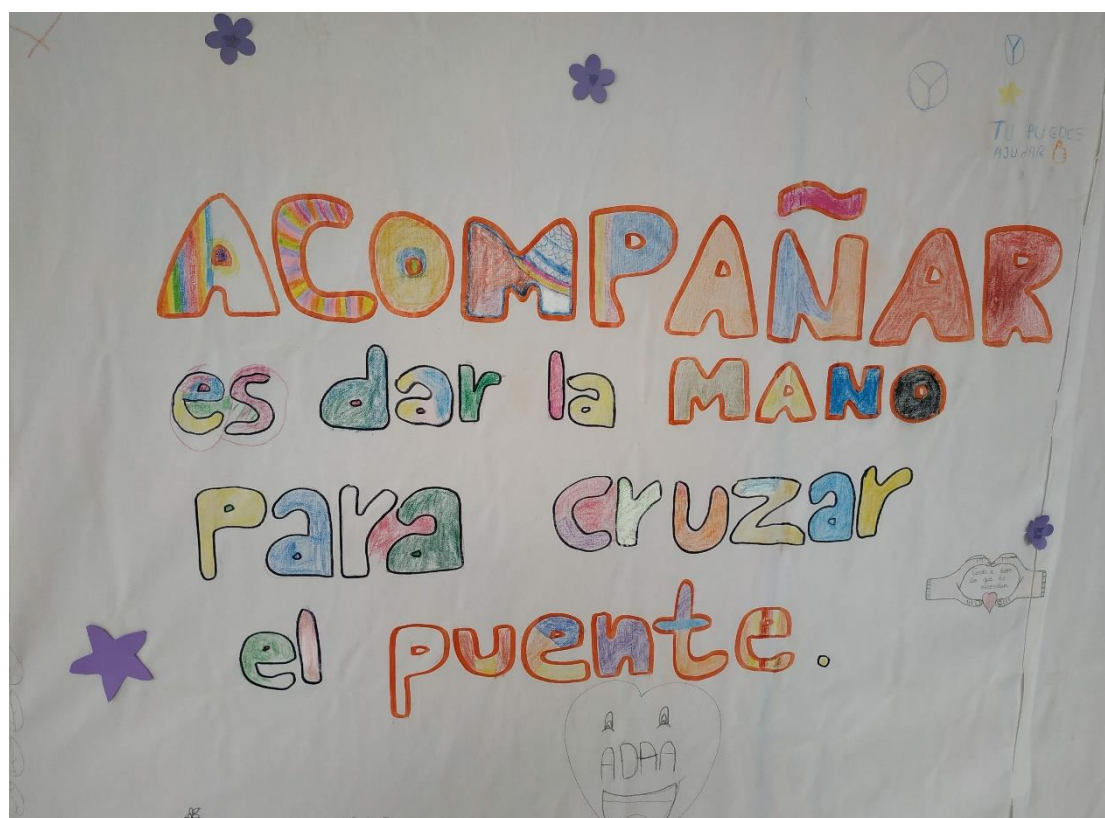 TU PUEDES
AJUDAR
ACOMPAÑAR
es dar la MANO
para cruzar
el puente.
ADAA